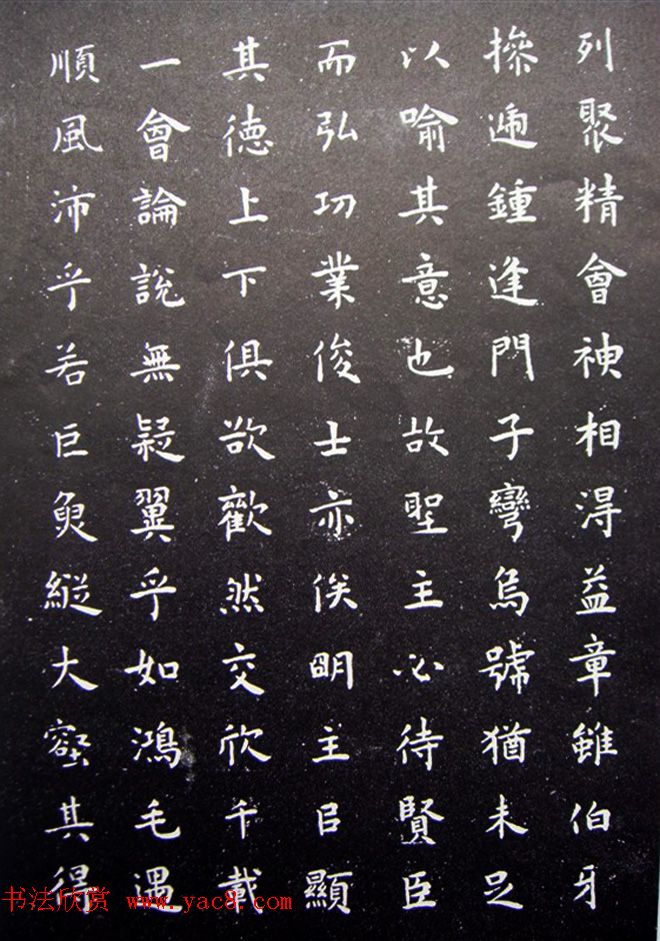 列聚精會神相得益章雖伯牙
操遞鍾逢門子彎烏號猶未足
以喻其意也故聖主必待賢臣
而弘功業俊士亦俟明主㠯顯
其德上下俱欲歡然交欣千載
一會論說無疑翼乎如鴻毛遇
順風沛乎若巨魚縱大壑其得
书法欣赏 www.yac8.com